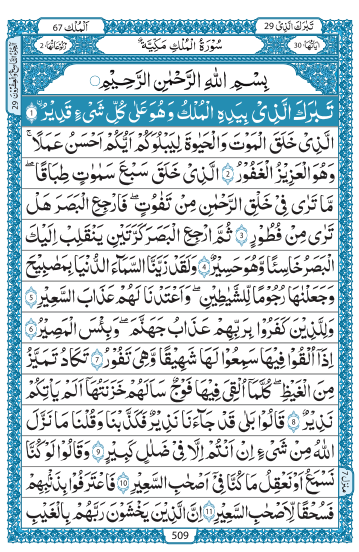 اَلْمُلْك 67
تَبٰرَكَ الَّذِیْ 29
رُكُوْعَاتُهَا: 2
سُوْرَةُ الْمُلْكِ مَكِّيَّةٌ
اٰيَاتُهَا: 30
بِسْمِ اللّٰهِ الرَّحْمٰنِ الرَّحِيْمِ
تَبٰرَكَ الَّذِیْ بِيَدِهِ الْمُلْكُ وَهُوَ عَلٰى كُلِّ شَیْءٍ قَدِيْرُ ۙ 1
الَّذِیْ خَلَقَ الْمَوْتَ وَالْحَيٰوةَ لِيَبْلُوَكُمْ اَيُّكُمْ اَحْسَنُ عَمَلًا ؕ
وَهُوَ الْعَزِيْزُ الْغَفُوْرُ ۙ 2 الَّذِیْ خَلَقَ سَبْعَ سَمٰوٰتٍ طِبَاقًا ؕ
مَا تَرٰى فِیْ خَلْقِ الرَّحْمٰنِ مِنْ تَفٰوُتٍ ؕ فَارْجِعِ الْبَصَرَ هَلْ
تَرٰى مِنْ فُطُوْرٍ 3 ثُمَّ ارْجِعِ الْبَصَرَ كَرَّتَيْنِ يَنْقَلِبْ اِلَيْكَ
الْبَصَرُ خَاسِئًا وَّهُوَ حَسِيْرٌ 4 وَلَقَدْ زَيَّنَّا السَّمَآءَ الدُّنْيَا بِمَصَابِيْحَ
وَجَعَلْنٰهَا رُجُوْمًا لِّلشَّيٰطِيْنِ وَاَعْتَدْنَا لَهُمْ عَذَابَ السَّعِيْرِ 5
وَلِلَّذِيْنَ كَفَرُوْا بِرَبِّهِمْ عَذَابُ جَهَنَّمَ ؕ وَبِئْسَ الْمَصِيْرُ 6
اِذَاۤ اُلْقُوْا فِيْهَا سَمِعُوْا لَهَا شَهِيْقًا وَّهِیَ تَفُوْرُ ۙ 7 تَكَادُ تَمَيَّزُ
مِنَ الْغَيْظِ ؕ كُلَّمَاۤ اُلْقِیَ فِيْهَا فَوْجٌ سَاَلَهُمْ خَزَنَتُهَاۤ اَلَمْ يَاْتِكُمْ
نَذِيْرٌ 8 قَالُوْا بَلٰى قَدْ جَآءَنَا نَذِيْرٌ ۙ فَكَذَّبْنَا وَقُلْنَا مَا نَزَّلَ
اللّٰهُ مِنْ شَیْءٍ ۖ اِنْ اَنْتُمْ اِلَّا فِیْ ضَلٰلٍ كَبِيْرٍ 9 وَقَالُوْا لَوْ كُنَّا
نَسْمَعُ اَوْ نَعْقِلُ مَا كُنَّا فِیْۤ اَصْحٰبِ السَّعِيْرِ 10 فَاعْتَرَفُوْا بِذَنْۢبِهِمْ ۚ
فَسُحْقًا لِّاَصْحٰبِ السَّعِيْرِ 11 اِنَّ الَّذِيْنَ يَخْشَوْنَ رَبَّهُمْ بِالْغَيْبِ
509